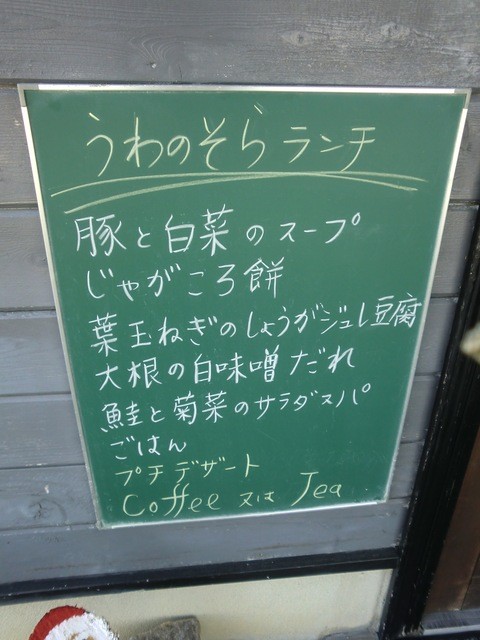 うわのそらランチ
豚と白菜のスープ
じゃがころ餅
葉玉ねぎのしょうがジュレ豆腐
大根の白味噌だれ
鮭と菊菜のサラダスパ
ごはん
プチデザート
Coffee 又は Tea